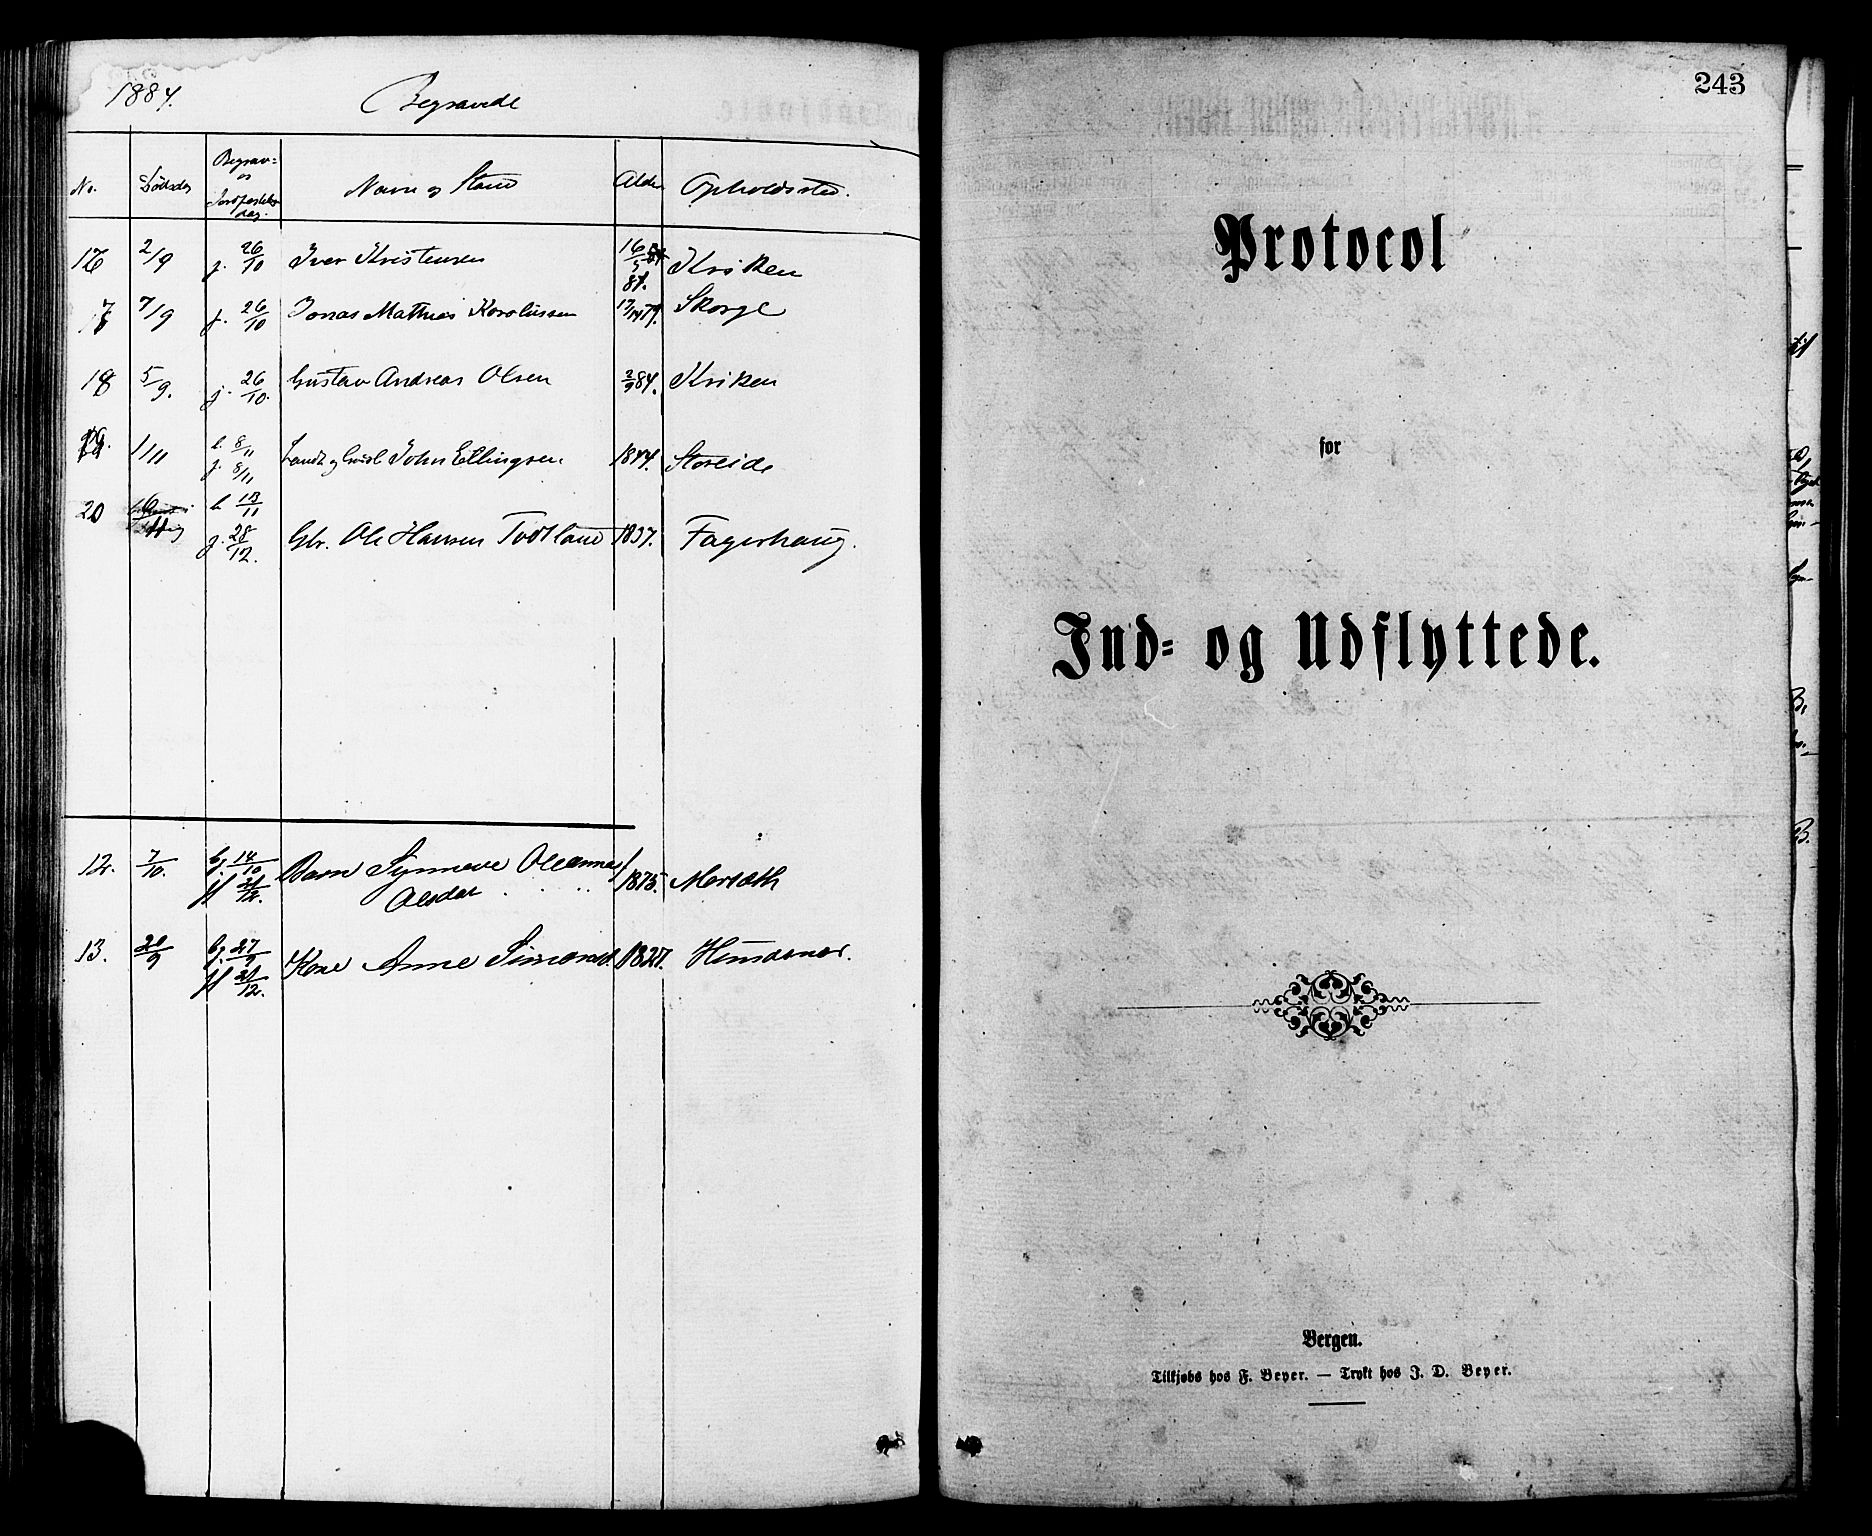 1884.
Begravede
No. Dödsdag Begrav- og Jordfæstelses dag. Navn og Stand Alder Opholdssted.
16 2/9 j. 26/10 Iver Kristensen 16/5 84. Kriken
17 7/9 j. 26/10 Jonas Mathias Karolussen 79. Skorge
18 5/9. j. 26/10. Gustav Andreas Olsen 2/9 84. Kriken
19. 1/11 b. 8/11 j. 8/11 John Ellingsen 1844. Storeide
20 b 13/11
j. 28/12. Gbr. Ole Hansen Tvedtland 1837. Fagerhaug.
12. 7/10. bg. 14/10 Barn Synneve Oleannes
jf 21/12. Olsdat 1875. Mersæth
13. 20/9 bg. 27/9 jf 21/12. Kone Anne Simonsd. 1827. Hundsnæs.
243
Protocol
for
Ind- og Udflyttede.
Bergen.
Tilkjøbs hos F. Beyer. — Trykt hos J. D. Beyer.